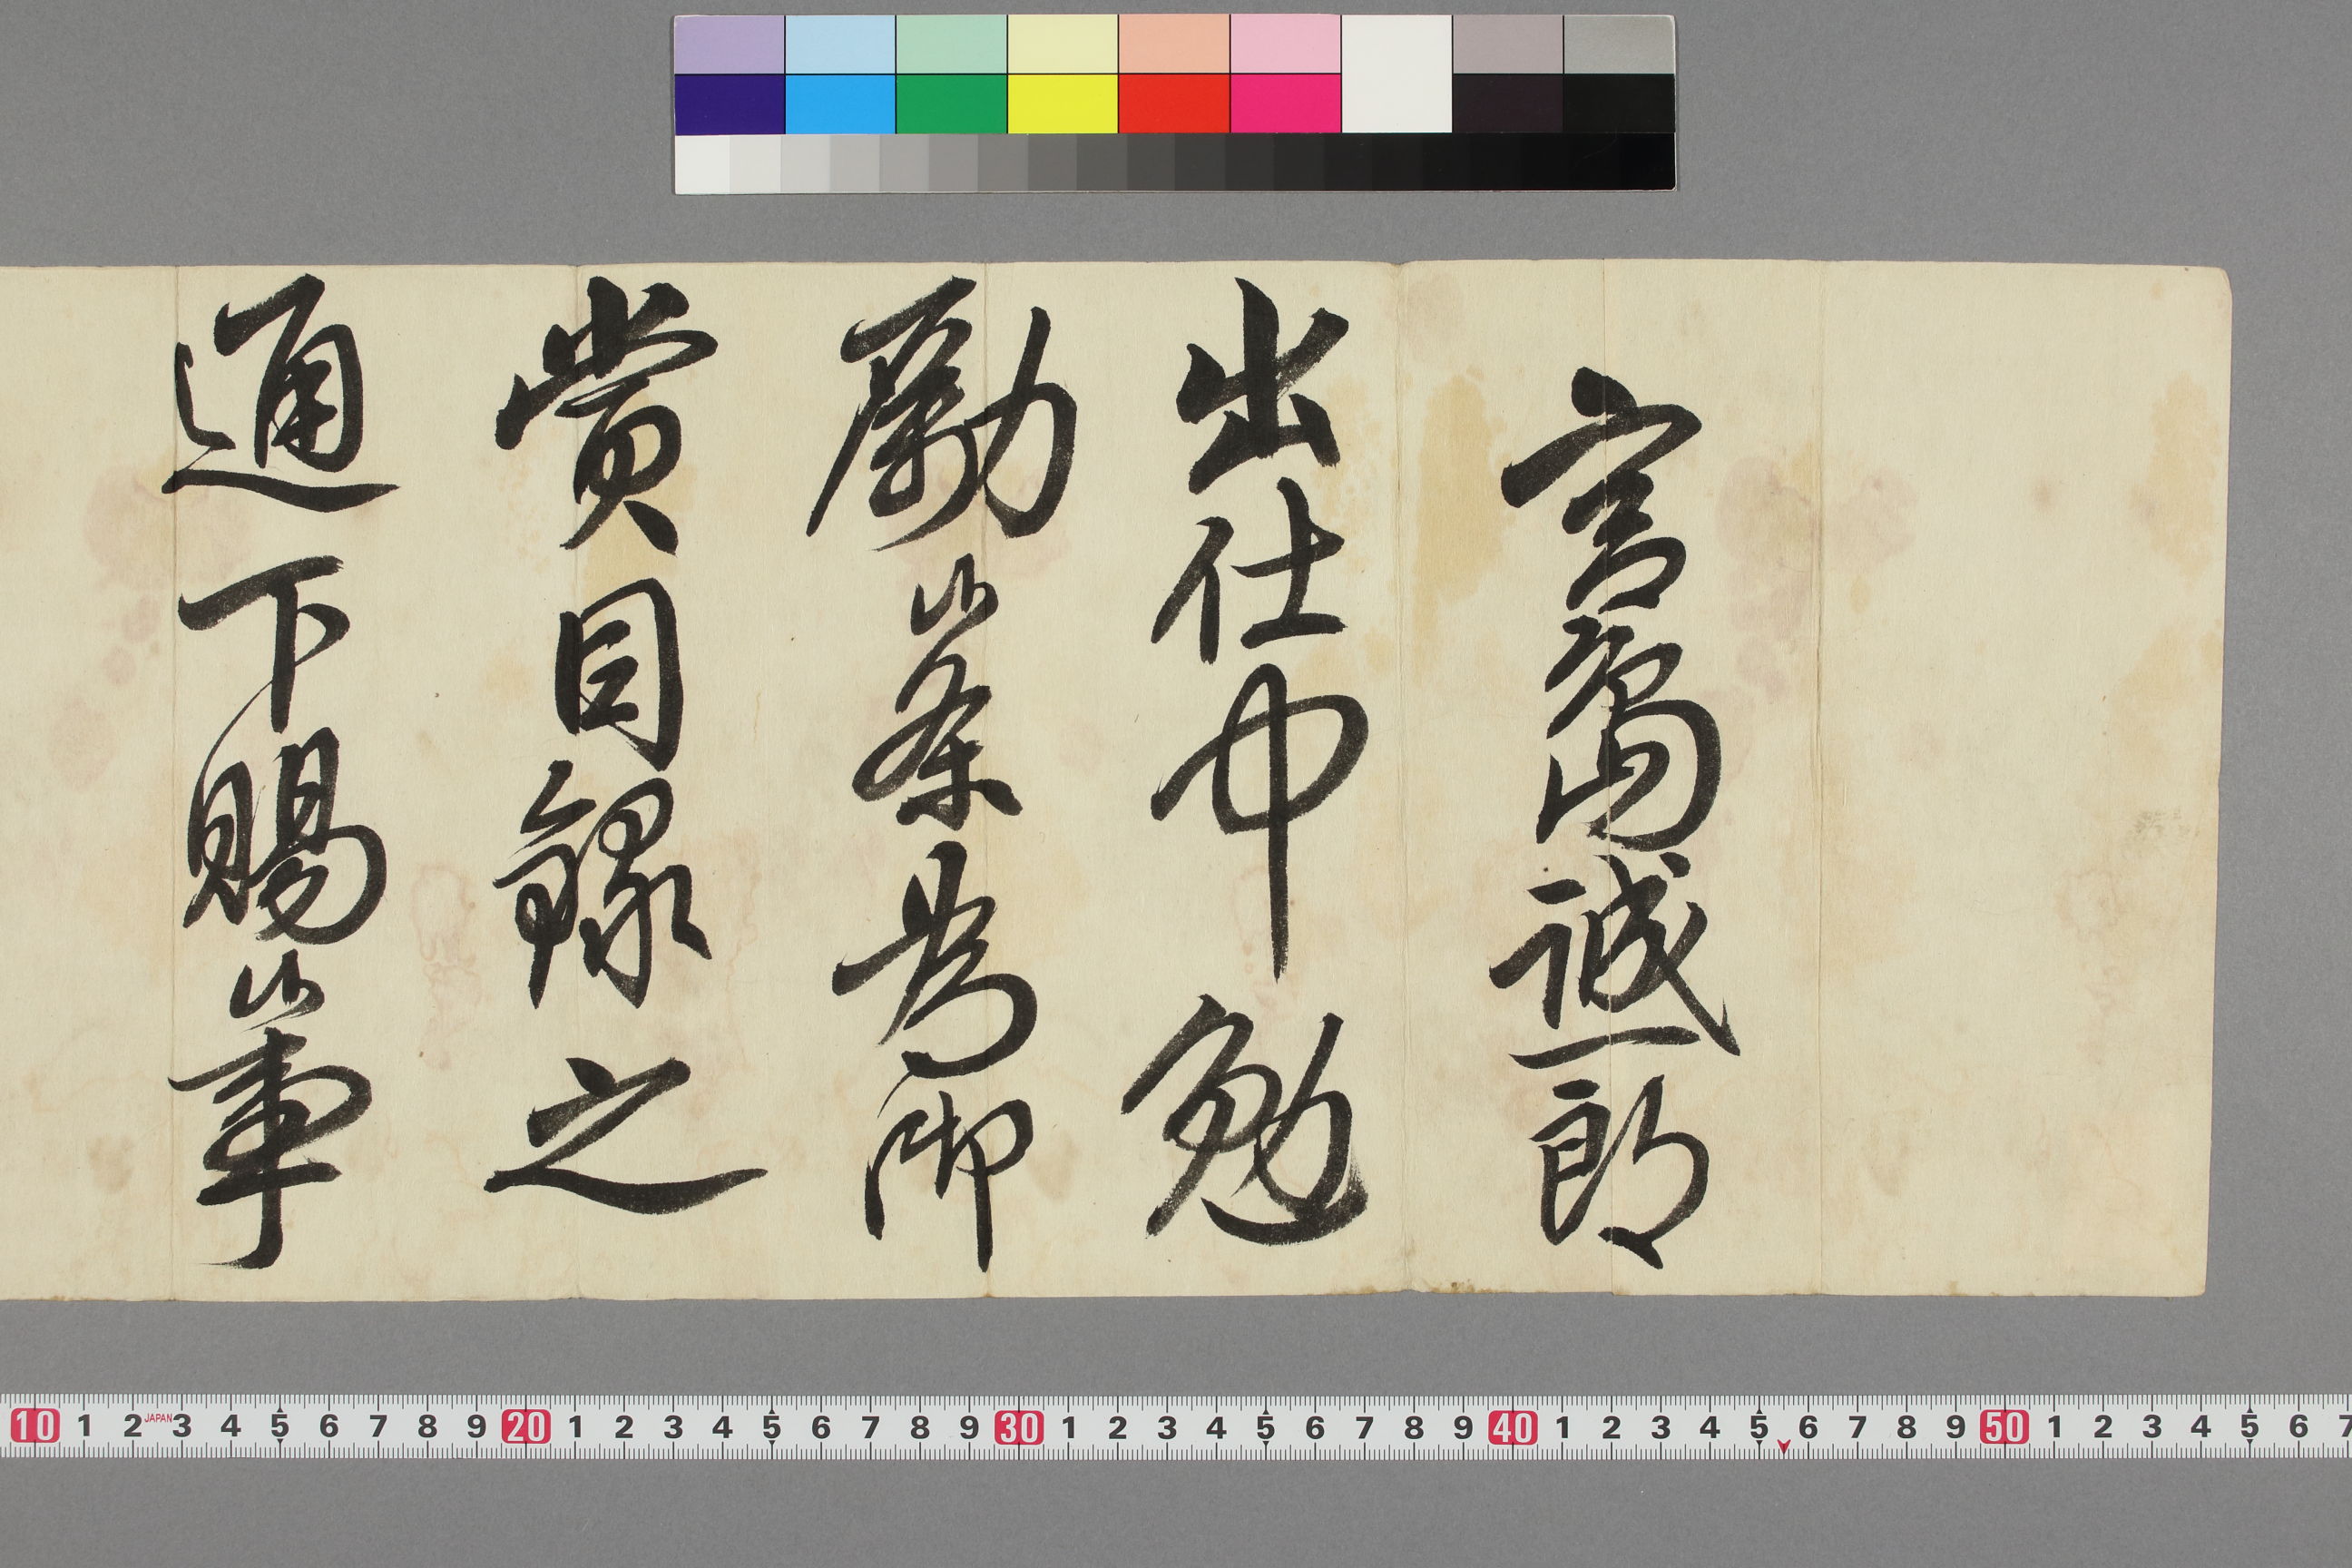 宮嶌誠一郎
出仕中勉
励候条為御
賞目録之
通下賜候事
10 1 2 JAPAN 3 4 5 6 7 8 9 20 1 2 3 4 5 6 7 8 9 30 1 2 3 4 5 6 7 8 9 40 1 2 3 4 5 6 7 8 9 50 1 2 3 4 5 6 7